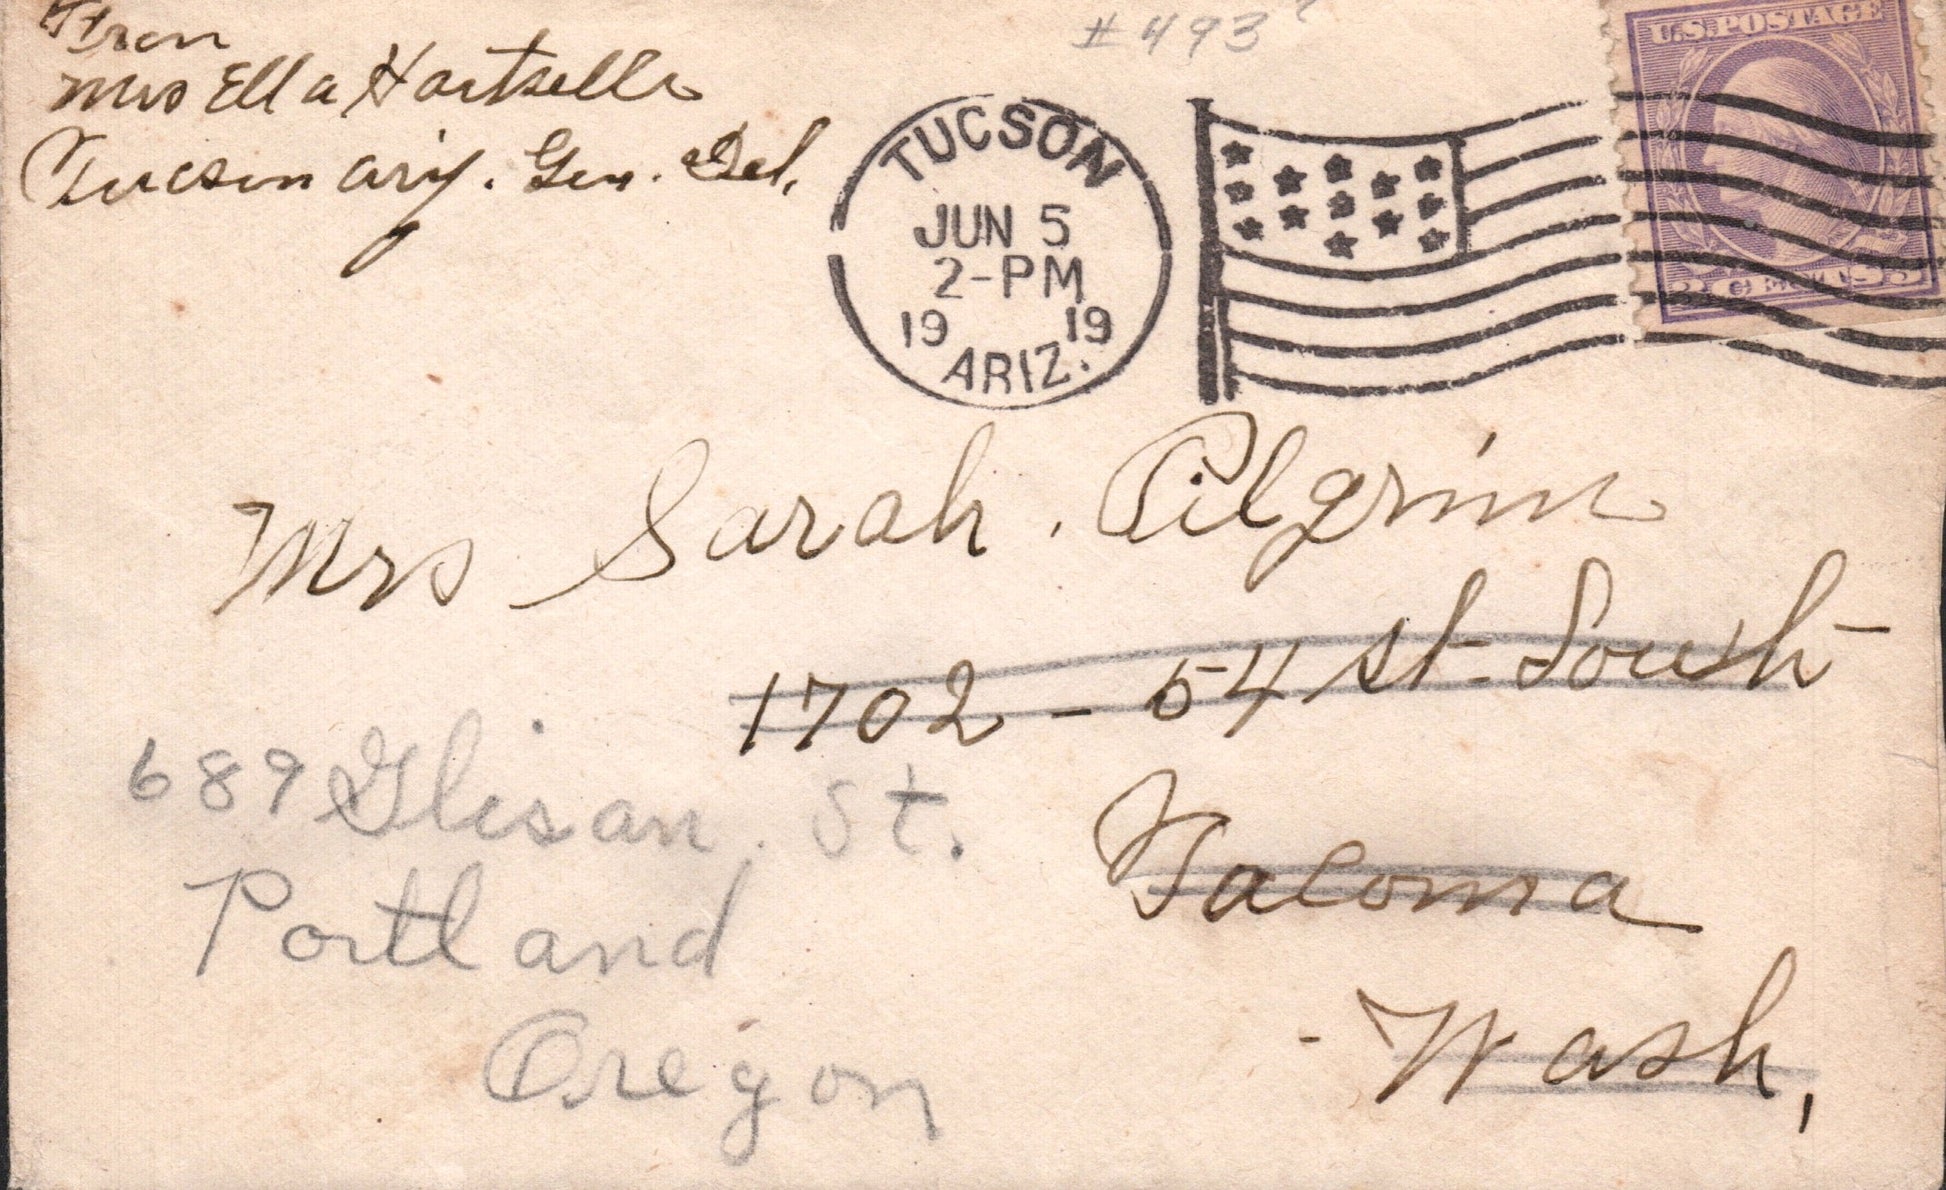 From
Mrs Ella Hartzelle
Tucson Ariz. Gen. Del.
#493?
TUCSON
JUN 5
2-PM
19 19
ARIZ.
U.S. POSTAGE
Mrs Sarah. Pilgrim
1702 - 54 St. South
Tacoma
Wash,
689 Glisan. St.
Portland
Oregon